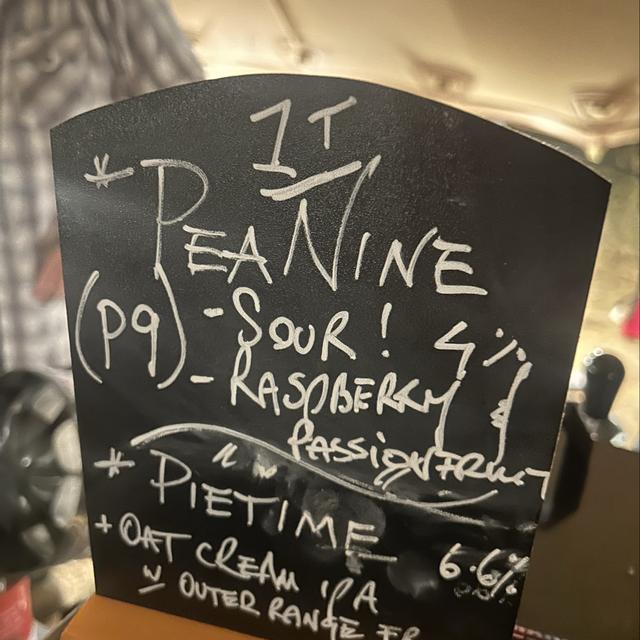 1T
* PEANINE
(P9) - SOUR! 4%
- RASPBERRY
PASSIONFRUIT
* PIETIME
+ OAT CREAM IPA 6.6%
W/ OUTER RANGE FR